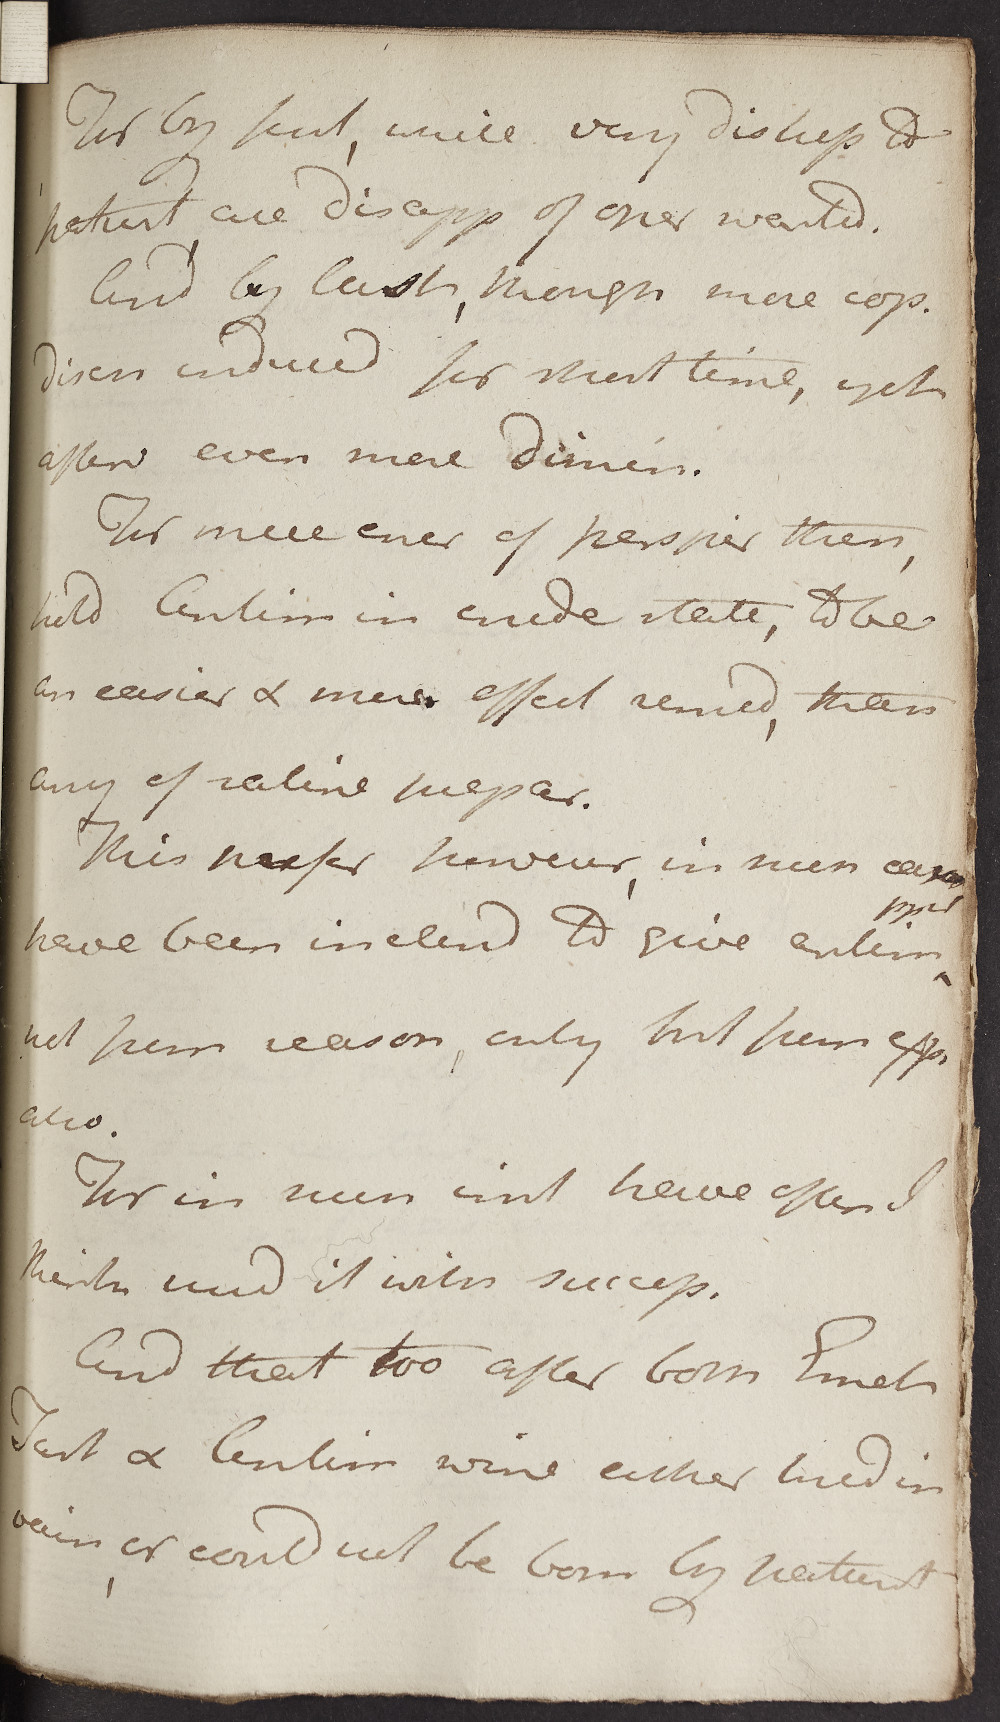 For by first, while very distress to
patient, are disapp of oper wanted.
And by last, though more cop.
disch induced for short time, yet
after even more dimin.
For mere encr of perspir then,
hold Antim in crude state, to be
an easier & more effect remed, than
any of saline prepar.
This prefer however, in num cases
have been inclind to give antim ppt
not from reason, only but from exp.
also.
For in num inst have often I
think usd it with success.
And that too after both Emet
Tart & Antim wine either tried in
vain, or could not be born by patient